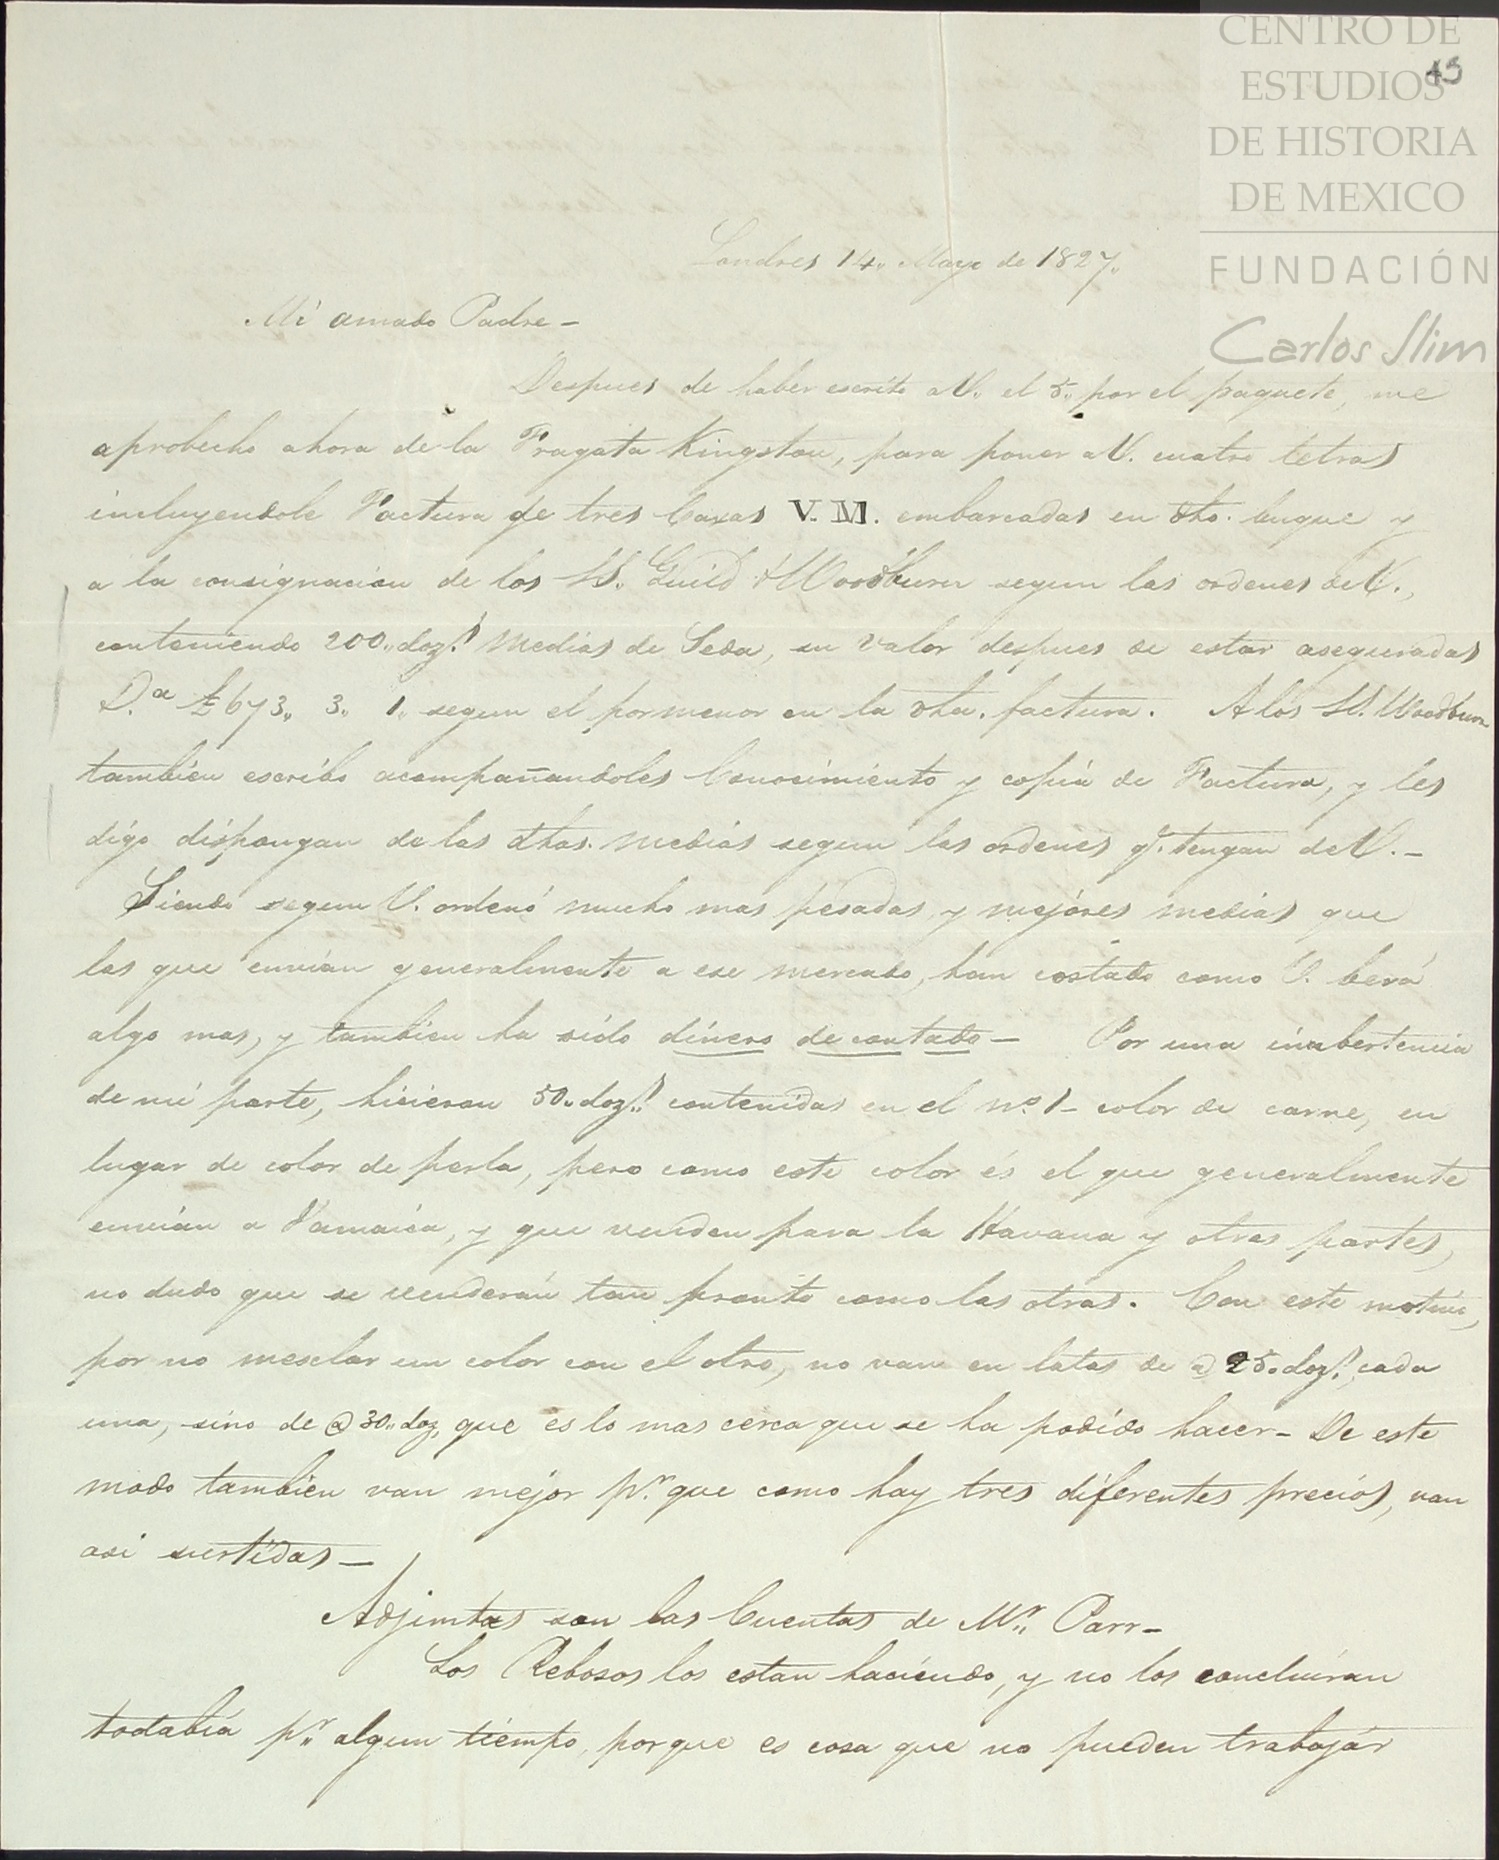 CENTRO DE
ESTUDIOS
DE HISTORIA
DE MEXICO
FUNDACIÓN
Carlos Slim
Londres 14,, Mayo de 1827,,
Mi amado Padre –
Despues de haber escrito a V. el 5,, por el paquete, me
aprobecho ahora de la Fragata Kingston, para poner a V. cuatro letras
incluyendole Factura de tres Caxas V. M. embarcadas en dho. buque y
a la consignacion de los SS. Guild & Woodburn segun las ordenes de V.,
conteniendo 200,, dozs. Medias de Seda, su valor despues de estar aseguradas
£673,, 3,, 1,, segun el pormenor en la dha. factura. A los SS. Woodburn
tambien escribo acompañandoles Conocimiento y copia de Factura, y les
digo dispongan de las dhas. medias segun las ordenes qe. tengan de V. –
Siendo segun V. ordenó mucho mas pesadas, y mejores medias que
las que envian generalmente a ese mercado, han costado como V. berá
algo mas, y tambien ha sido dinero de contado – Por una inabertencia
de mi parte, hicieron 50,, dozs. contenidas en el No. 1 – color de carne, en
lugar de color de perla, pero como este color és el que generalmente
envian a Jamaica, y que venden para la Havana y otras partes,
no dudo que se venderán tan pronto como las otras. Con este motivo,
por no mesclar un color con el otro, no van en latas de @ 25,, dozs. cada
una, sino de @ 30,, doz, que es lo mas cerca que se ha podido hacer – De este
modo tambien van mejor pr. que como hay tres diferentes precios, van
asi surtidas –
Adjuntas son las Cuentas de Mr. Parr –
Los Rebosos los estan haciendo, y no los concluiran
todabia pr. algun tiempo, porque es cosa que no pueden trabajár